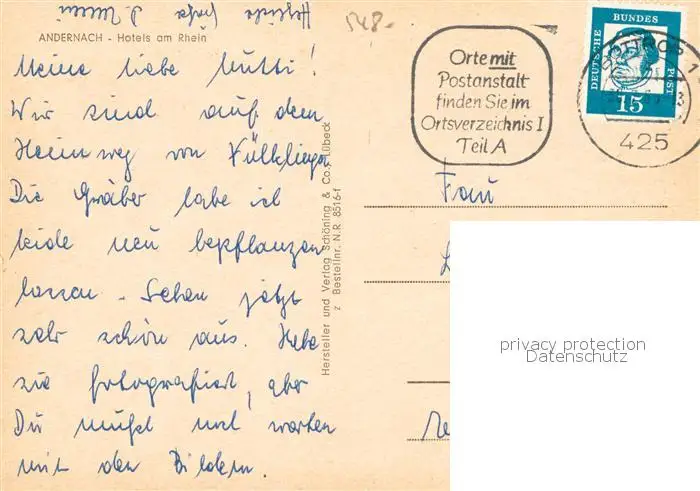 Herzliche Grüße
548.-
ANDERNACH - Hotels am Rhein
Meine liebe Mutti!
Wir sind auf dem
Heimweg von Völklingen
Die Gräber habe ich
beide neu bepflanzen
lassen. Sehen jetzt
sehr schön aus. Habe
sie fotografiert, aber
Du mußt noch warten
mit den Bildern.
Hersteller und Verlag Schöning & Co., Lübeck
z Bestellnr. N.R 8516-f
Orte mit
Postanstalt
finden Sie im
Ortsverzeichnis I
Teil A
BOTTROP 1
425
DEUTSCHE BUNDESPOST
15
Frau
privacy protection
Datenschutz